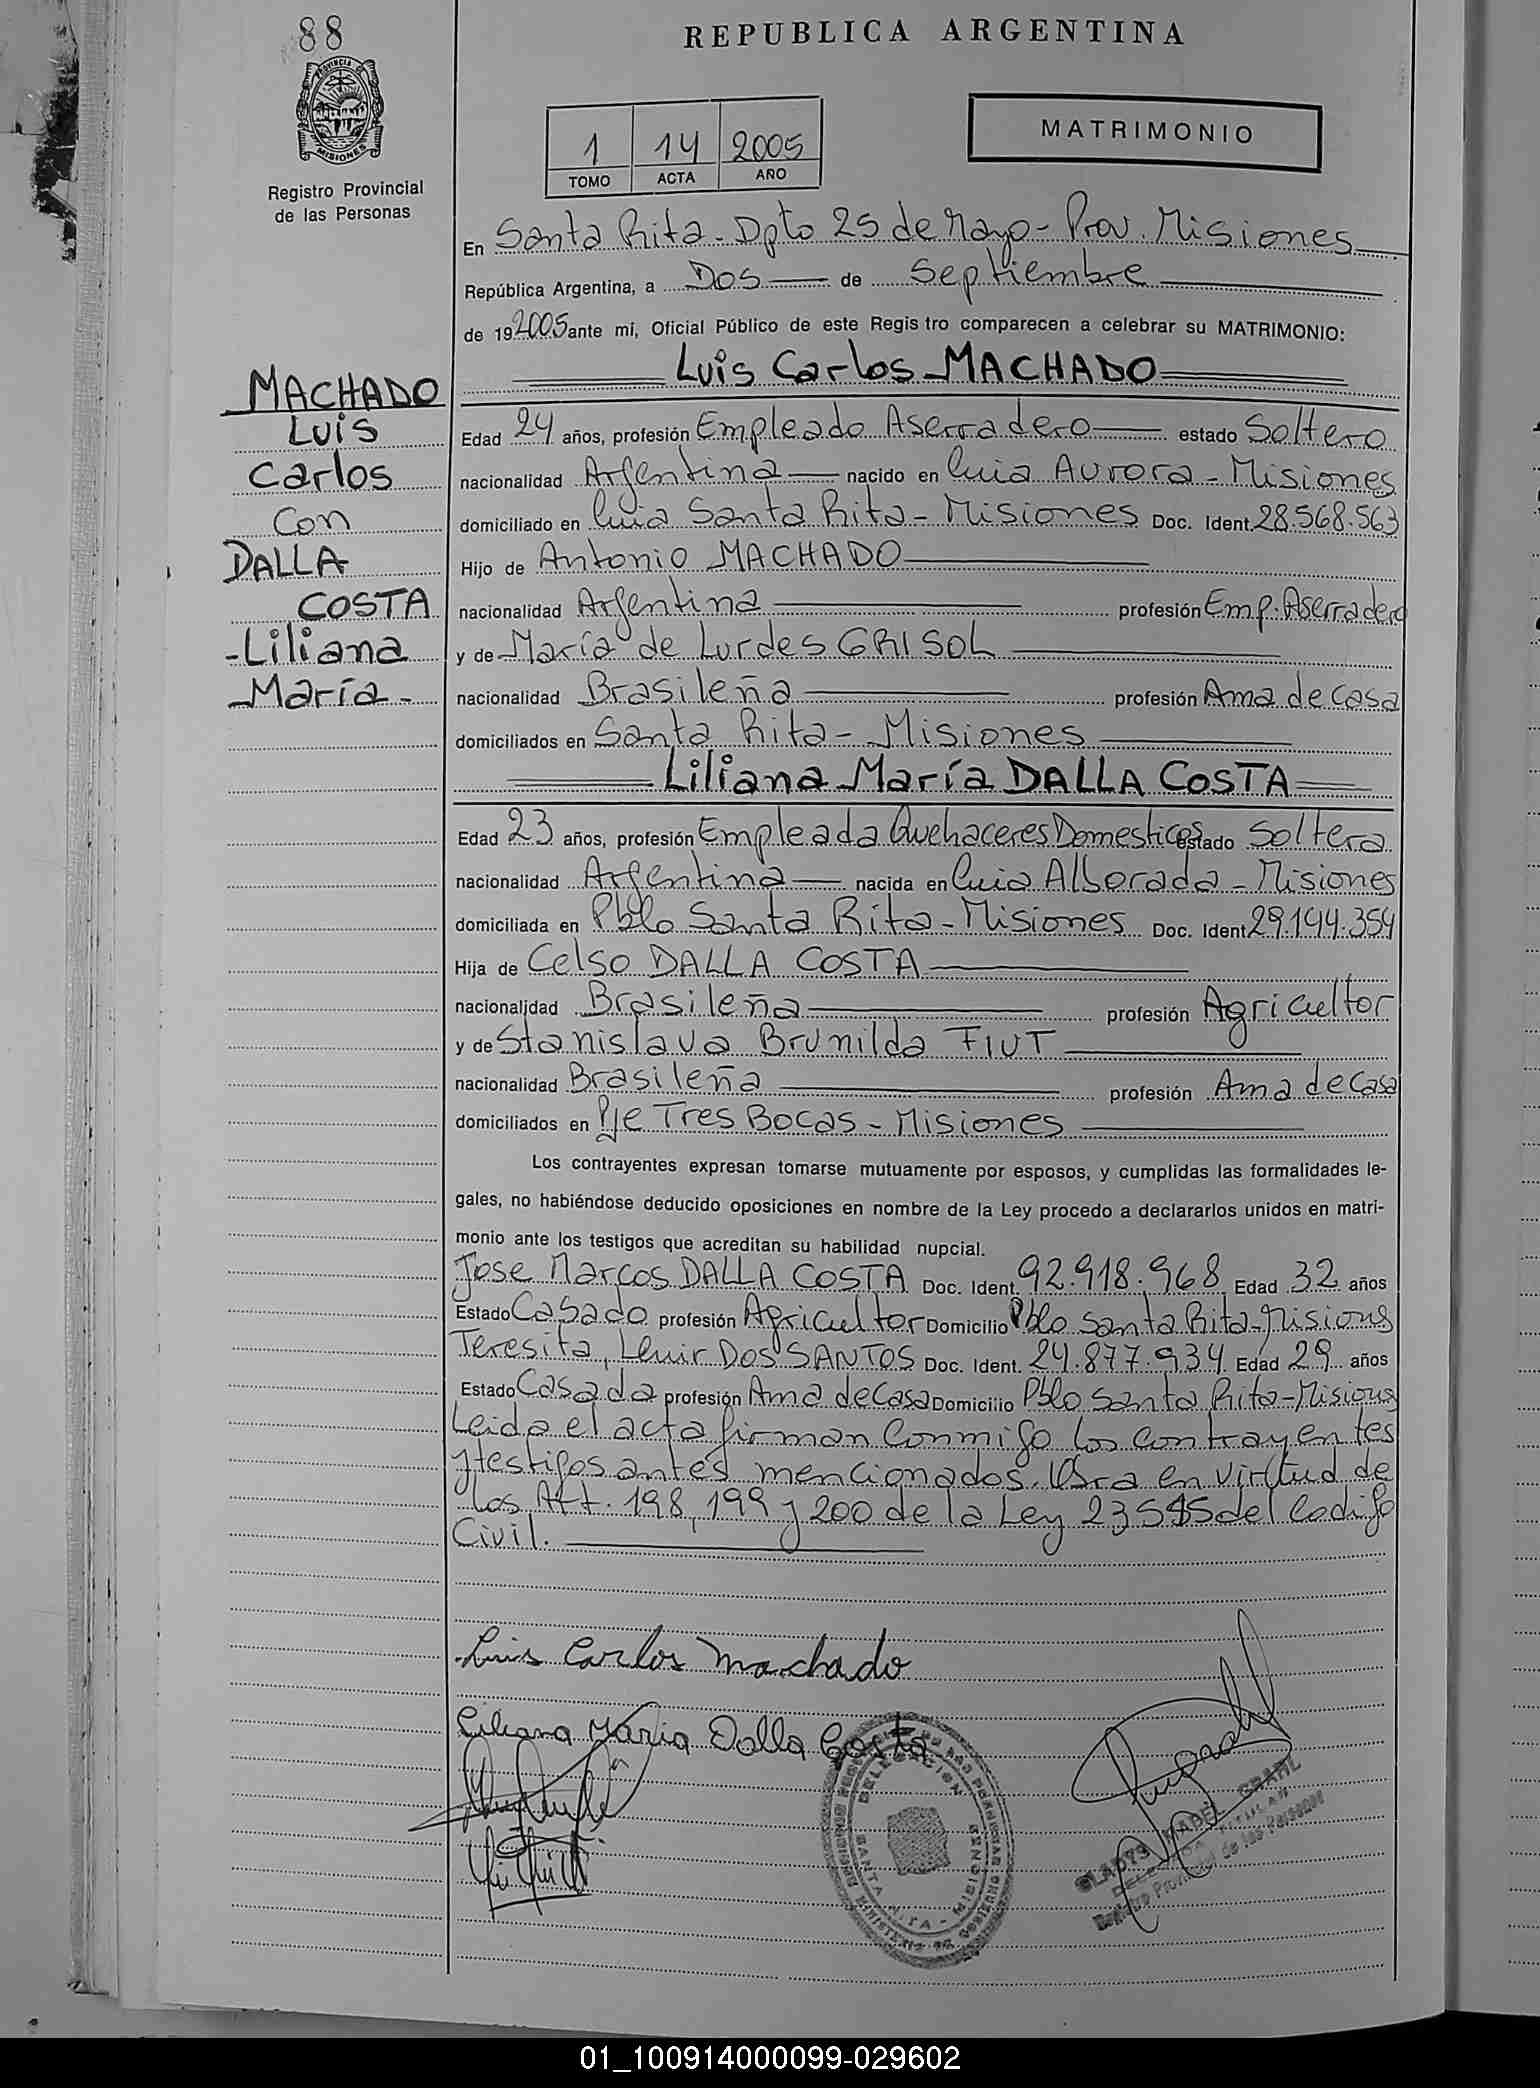 88
REPUBLICA ARGENTINA
PROVINCIA DE
MISIONES
Registro Provincial
de las Personas
1 14 2005
TOMO ACTA AÑO
MATRIMONIO
En Santa Rita - Dpto 25 de Mayo - Prov. Misiones
República Argentina, a Dos de Septiembre
de 19 2005 ante mí, Oficial Público de este Registro comparecen a celebrar su MATRIMONIO:
MACHADO
Luis
Carlos
Con
DALLA
COSTA
-Liliana
-María-
Luis Carlos MACHADO
Edad 24 años, profesión Empleado Aserradero estado Soltero
nacionalidad Argentina nacido en Cnia Aurora - Misiones
domiciliado en Cnia Santa Rita - Misiones Doc. Ident. 28.568.563
Hijo de Antonio MACHADO
nacionalidad Argentina profesión Emp. Aserradero
y de María de Lurdes GRISOL
nacionalidad Brasileña profesión Ama de Casa
domiciliados en Santa Rita - Misiones
Liliana María DALLA COSTA
Edad 23 años, profesión Empleada Quehaceres Domesticos estado Soltera
nacionalidad Argentina nacida en Cnia Alborada - Misiones
domiciliada en Pblo Santa Rita - Misiones Doc. Ident 29.144.354
Hija de Celso DALLA COSTA
nacionalidad Brasileña profesión Agricultor
y de Stanislava Brunilda FIUT
nacionalidad Brasileña profesión Ama de Casa
domiciliados en Pje Tres Bocas - Misiones
Los contrayentes expresan tomarse mutuamente por esposos, y cumplidas las formalidades le-
gales, no habiéndose deducido oposiciones en nombre de la Ley procedo a declararlos unidos en matri-
monio ante los testigos que acreditan su habilidad nupcial.
Jose Marcos DALLA COSTA Doc. Ident. 92.918.968 Edad 32 años
Estado Casado profesión Agricultor Domicilio Pblo Santa Rita - Misiones
Teresita, Lenir DOS SANTOS Doc. Ident. 24.877.934 Edad 29 años
Estado Casada profesión Ama de Casa Domicilio Pblo Santa Rita - Misiones
Leida el acta firman Conmigo los Contrayentes
y testigos antes mencionados. en virtud de
los Art. 198, 199 y 200 de la Ley 23515 del Codigo
Civil.
Luis Carlos Machado
Liliana Maria Dalla Costa
DELEGACION
SANTA RITA - MISIONES
GLADYS MABEL GRAHL
DELEGADA TITULAR
Registro Provincial de las Personas
01_100914000099-029602